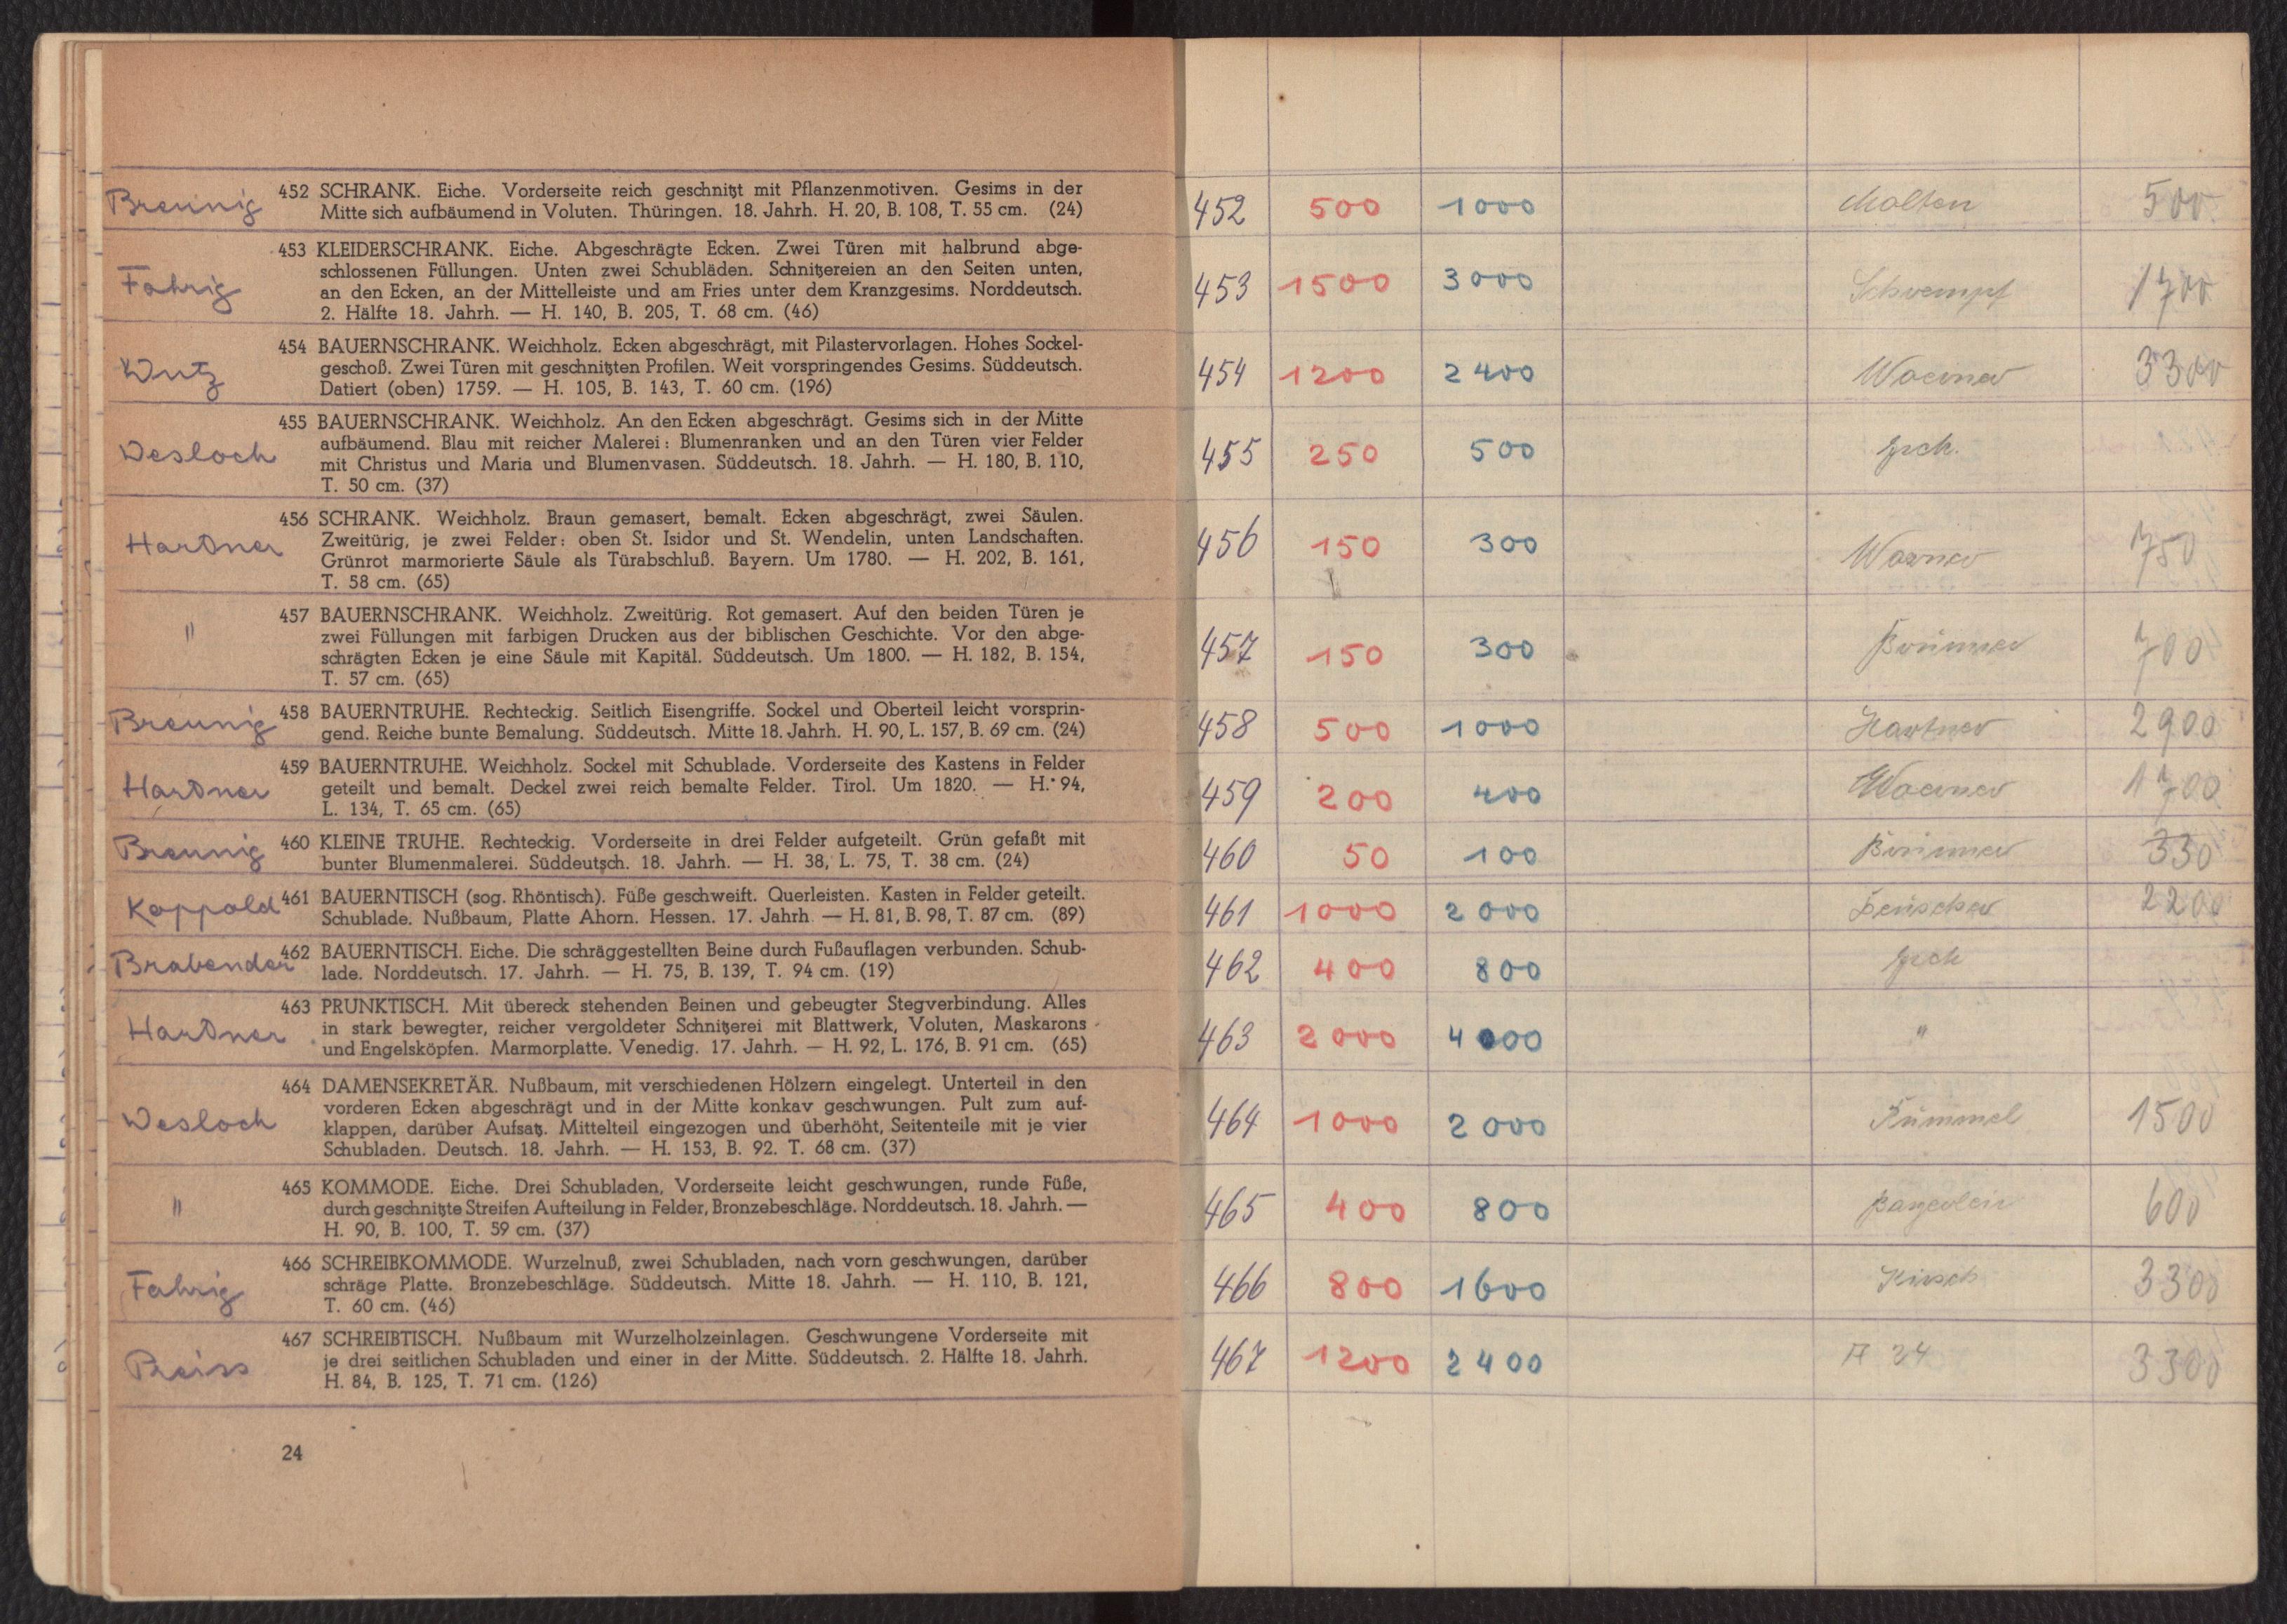 Breunig
452 SCHRANK. Eiche. Vorderseite reich geschnitzt mit Pflanzenmotiven. Gesims in der
Mitte sich aufbäumend in Voluten. Thüringen. 18. Jahrh. H. 20, B. 108, T. 55 cm. (24)
Fahrig
453 KLEIDERSCHRANK. Eiche. Abgeschrägte Ecken. Zwei Türen mit halbrund abge-
schlossenen Füllungen. Unten zwei Schubläden. Schnitzereien an den Seiten unten,
an den Ecken, an der Mittelleiste und am Fries unter dem Kranzgesims. Norddeutsch.
2. Hälfte 18. Jahrh. — H. 140, B. 205, T. 68 cm. (46)
Wutz
454 BAUERNSCHRANK. Weichholz. Ecken abgeschrägt, mit Pilastervorlagen. Hohes Sockel-
geschoß. Zwei Türen mit geschnitzten Profilen. Weit vorspringendes Gesims. Süddeutsch.
Datiert (oben) 1759. — H. 105, B. 143, T. 60 cm. (196)
Desloch
455 BAUERNSCHRANK. Weichholz. An den Ecken abgeschrägt. Gesims sich in der Mitte
aufbäumend. Blau mit reicher Malerei: Blumenranken und an den Türen vier Felder
mit Christus und Maria und Blumenvasen. Süddeutsch. 18. Jahrh. — H. 180, B. 110,
T. 50 cm. (37)
Hartner
456 SCHRANK. Weichholz. Braun gemasert, bemalt. Ecken abgeschrägt, zwei Säulen.
Zweitürig, je zwei Felder: oben St. Isidor und St. Wendelin, unten Landschaften.
Grünrot marmorierte Säule als Türabschluß. Bayern. Um 1780. — H. 202, B. 161,
T. 58 cm. (65)
"
457 BAUERNSCHRANK. Weichholz. Zweitürig. Rot gemasert. Auf den beiden Türen je
zwei Füllungen mit farbigen Drucken aus der biblischen Geschichte. Vor den abge-
schrägten Ecken je eine Säule mit Kapitäl. Süddeutsch. Um 1800. — H. 182, B. 154,
T. 57 cm. (65)
Breunig
458 BAUERNTRUHE. Rechteckig. Seitlich Eisengriffe. Sockel und Oberteil leicht vorsprin-
gend. Reiche bunte Bemalung. Süddeutsch. Mitte 18. Jahrh. H. 90, L. 157, B. 69 cm. (24)
Hartner
459 BAUERNTRUHE. Weichholz. Sockel mit Schublade. Vorderseite des Kastens in Felder
geteilt und bemalt. Deckel zwei reich bemalte Felder. Tirol. Um 1820. — H. 94,
L. 134, T. 65 cm. (65)
Breunig
460 KLEINE TRUHE. Rechteckig. Vorderseite in drei Felder aufgeteilt. Grün gefaßt mit
bunter Blumenmalerei. Süddeutsch. 18. Jahrh. — H. 38, L. 75, T. 38 cm. (24)
Koppold
461 BAUERNTISCH (sog. Rhöntisch). Füße geschweift. Querleisten. Kasten in Felder geteilt.
Schublade. Nußbaum, Platte Ahorn. Hessen. 17. Jahrh — H. 81, B. 98, T. 87 cm. (89)
Brabender
462 BAUERNTISCH. Eiche. Die schräggestellten Beine durch Fußauflagen verbunden. Schub-
lade. Norddeutsch. 17. Jahrh. — H. 75, B. 139, T. 94 cm. (19)
Hartner
463 PRUNKTISCH. Mit übereck stehenden Beinen und gebeugter Stegverbindung. Alles
in stark bewegter, reicher vergoldeter Schnitzerei mit Blattwerk, Voluten, Maskarons
und Engelsköpfen. Marmorplatte. Venedig. 17. Jahrh. — H. 92, L. 176, B. 91 cm. (65)
Desloch
464 DAMENSEKRETÄR. Nußbaum, mit verschiedenen Hölzern eingelegt. Unterteil in den
vorderen Ecken abgeschrägt und in der Mitte konkav geschwungen. Pult zum auf-
klappen, darüber Aufsatz. Mittelteil eingezogen und überhöht, Seitenteile mit je vier
Schubladen. Deutsch. 18. Jahrh. — H. 153, B. 92. T. 68 cm. (37)
"
465 KOMMODE. Eiche. Drei Schubladen, Vorderseite leicht geschwungen, runde Füße,
durch geschnitzte Streifen Aufteilung in Felder, Bronzebeschläge. Norddeutsch. 18. Jahrh. —
H. 90, B. 100, T. 59 cm. (37)
Fahrig
466 SCHREIBKOMMODE. Wurzelnuß, zwei Schubladen, nach vorn geschwungen, darüber
schräge Platte. Bronzebeschläge. Süddeutsch. Mitte 18. Jahrh. — H. 110, B. 121,
T. 60 cm. (46)
Preiss
467 SCHREIBTISCH. Nußbaum mit Wurzelholzeinlagen. Geschwungene Vorderseite mit
je drei seitlichen Schubladen und einer in der Mitte. Süddeutsch. 2. Hälfte 18. Jahrh.
H. 84, B. 125, T. 71 cm. (126)
24
452 500 1000 Molton 500.
453 1500 3000 Schrempf 1700
454 1200 2400 Woerner 3300
455 250 500 zrck.
456 150 300 Woerner 750
457 150 300 Brümmer 700
458 500 1000 Hartner 2900
459 200 400 Woerner 1700
460 50 100 Brümmer 330
461 1000 2000 2200
462 400 800 zrck
463 2000 4000 "
464 1000 2000 Kümmel 1500
465 400 800 600
466 800 1600 Kirsch 3300
467 1200 2400 A 34 3300